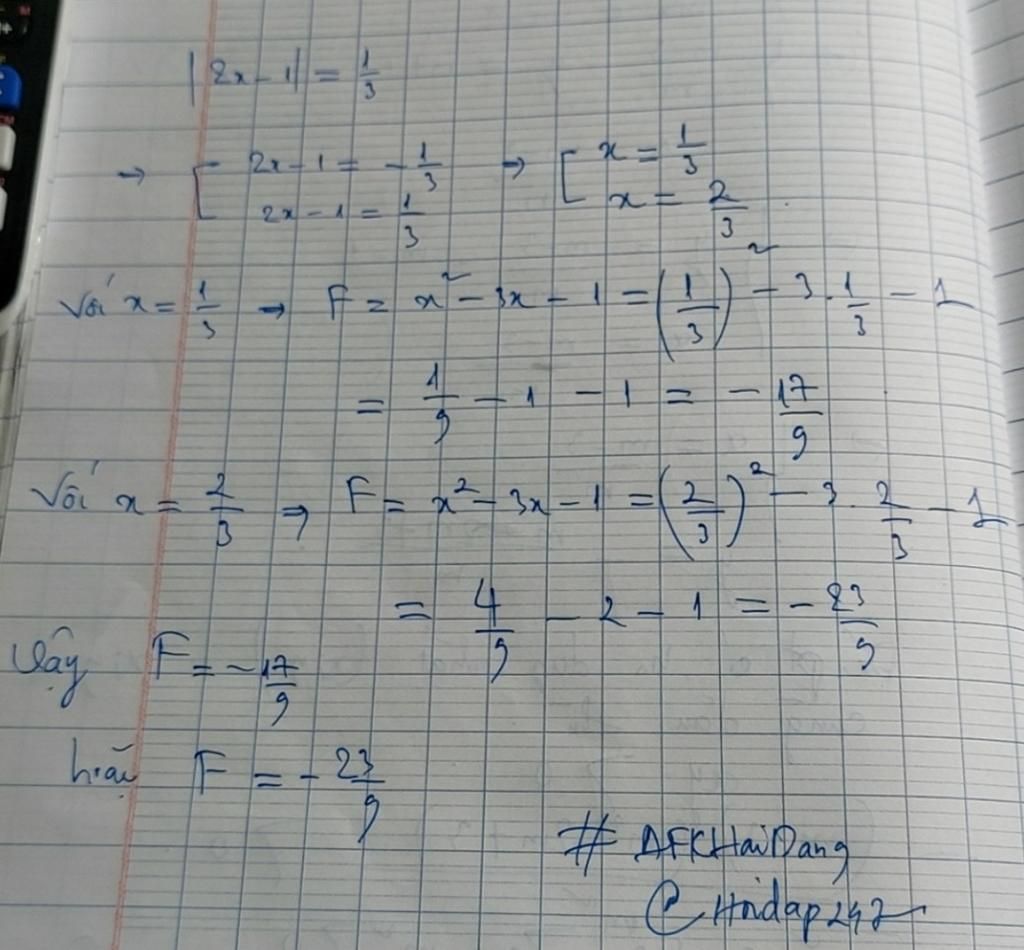 |2x - 1| = 1/3
→ [ 2x - 1 = - 1/3 → [ x = 1/3
2x - 1 = 1/3 x = 2/3
Với x = 1/3 → F = x² - 3x - 1 = (1/3)² - 3. 1/3 - 1
= 1/9 - 1 - 1 = - 17/9
Với x = 2/3 ⇒ F = x² - 3x - 1 = (2/3)² - 3. 2/3 - 1
= 4/9 - 2 - 1 = - 23/9
Vậy F = - 17/9
hoặc F = - 23/9
# AFKHaiDang
@Hoidap247